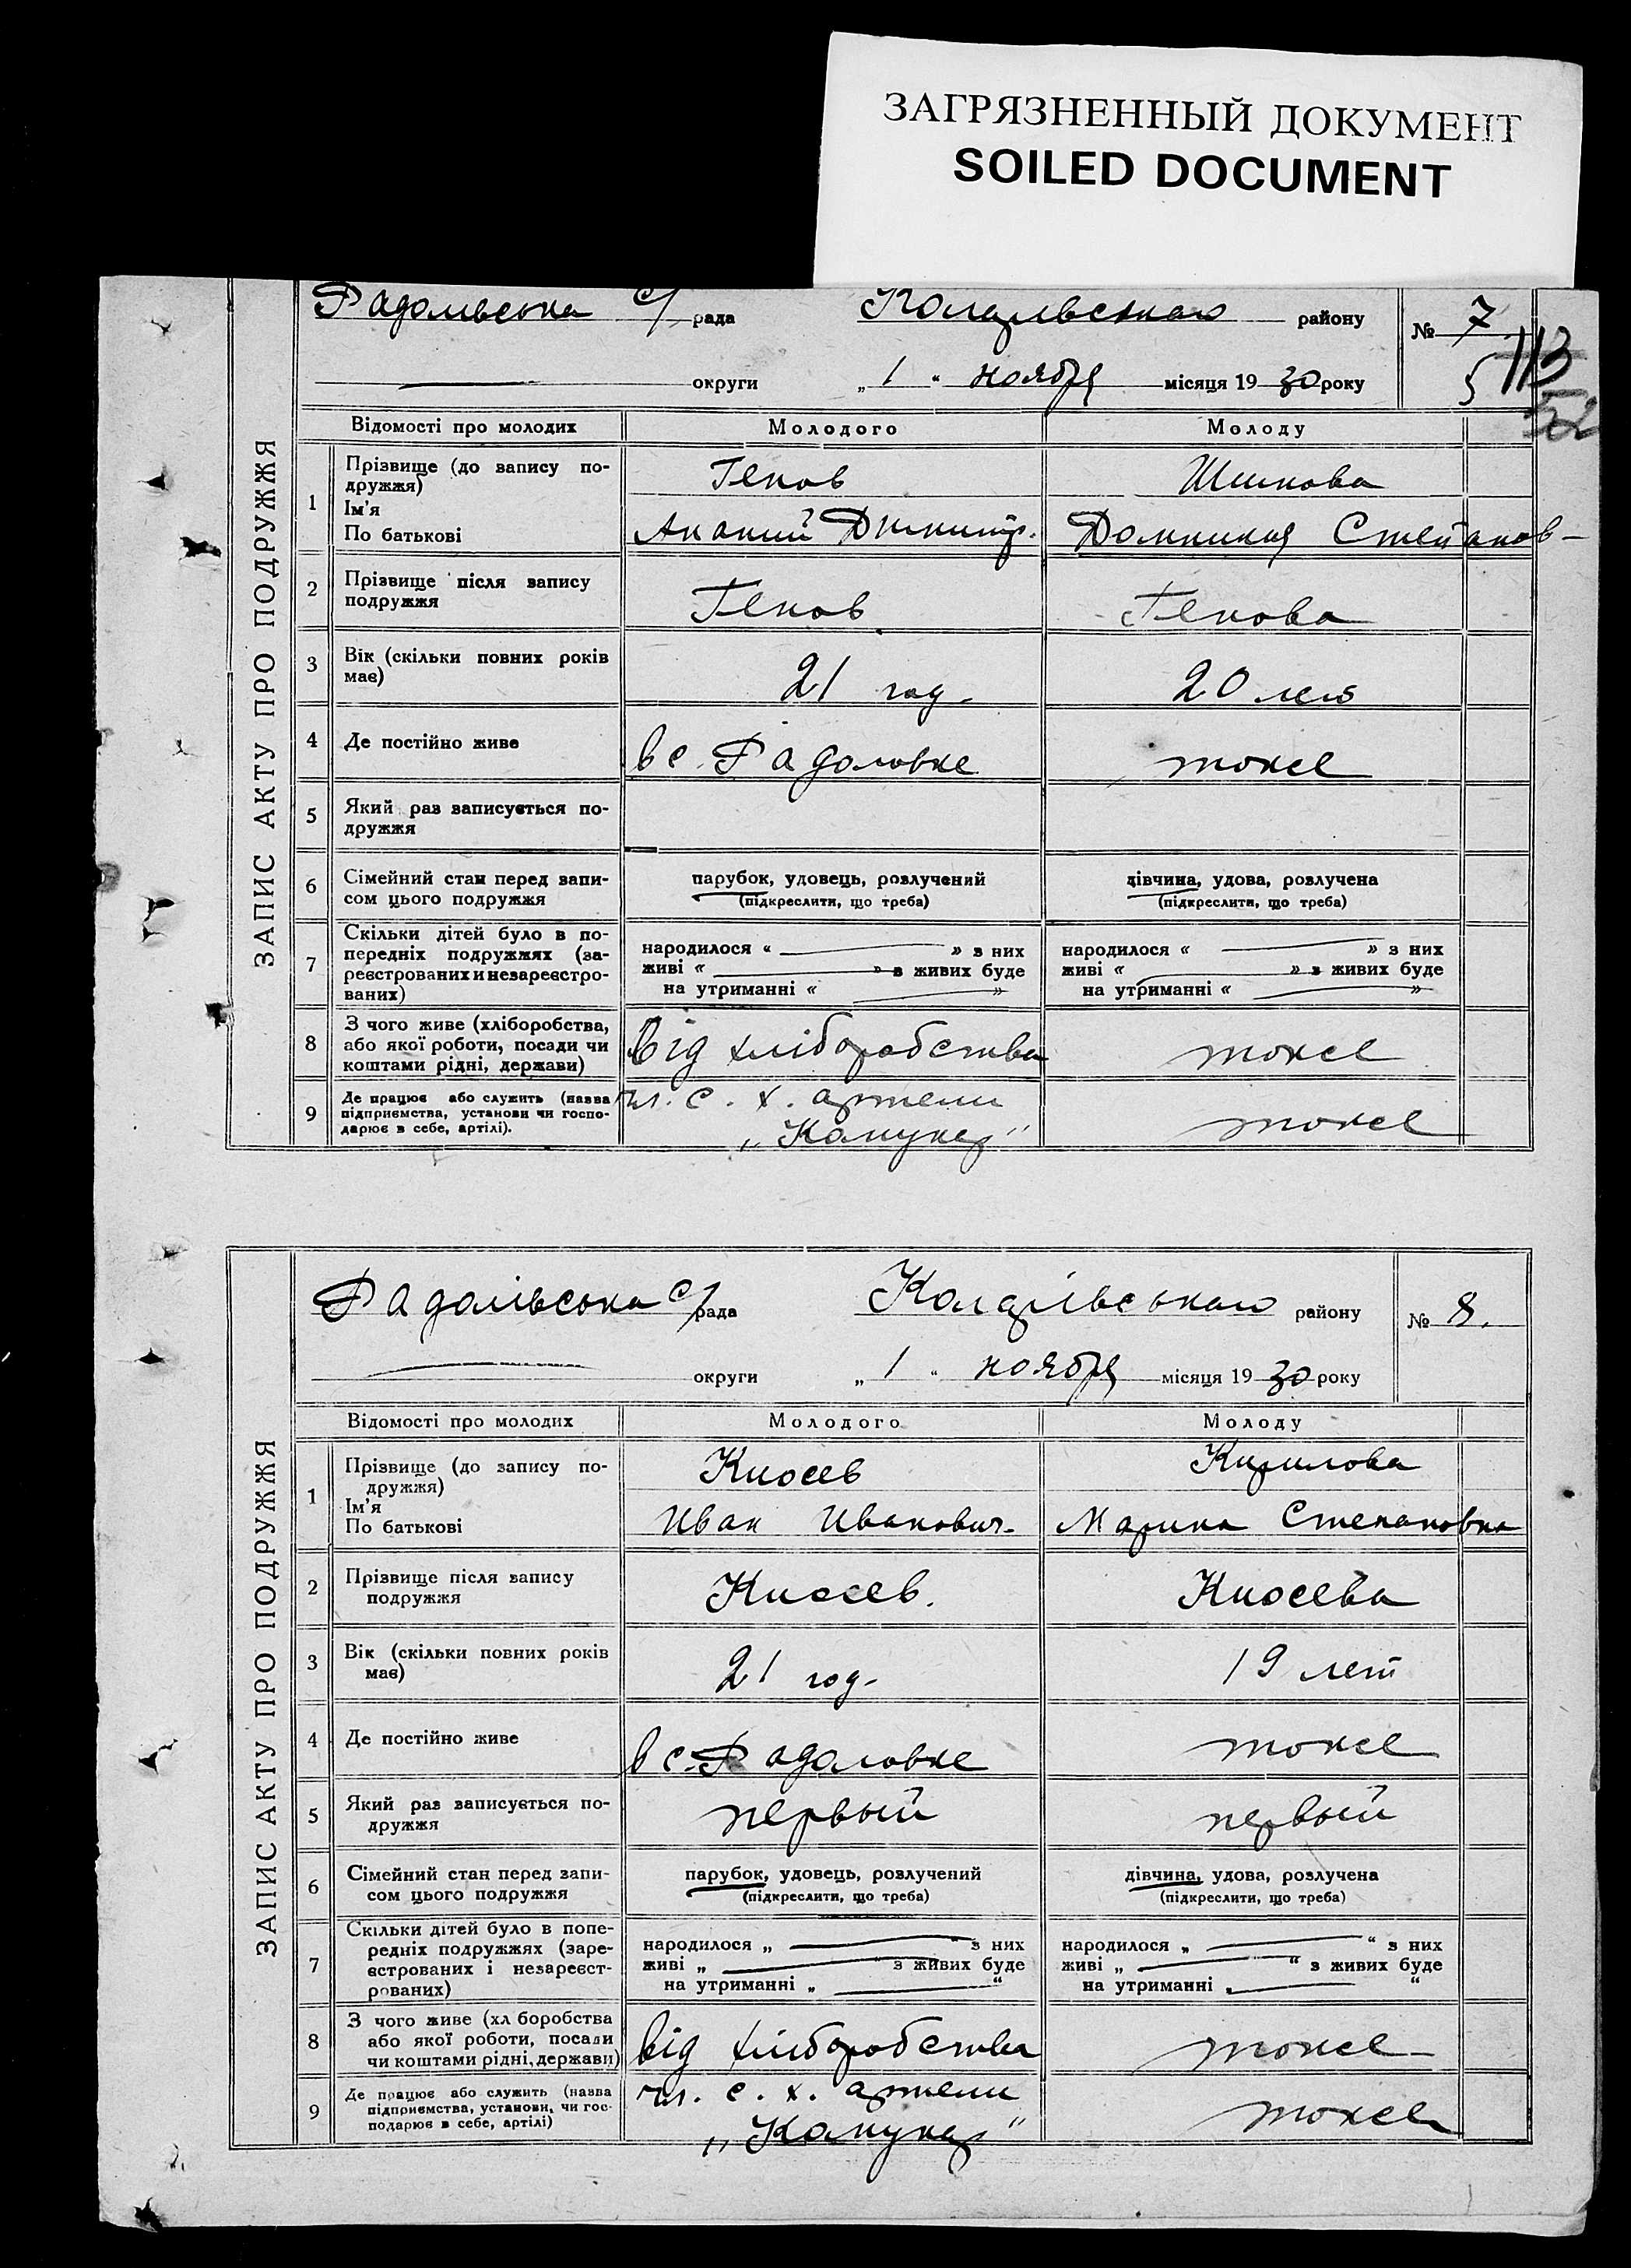 ЗАГРЯЗНЕННЫЙ ДОКУМЕНТ
SOILED DOCUMENT
ЗАПИС АКТУ ПРО ПОДРУЖЖЯ
с/рада району № 7
округи „ 1 “ ноября місяця 1930 року
113
Відомості про молодих Молодого Молоду
1 Прізвище (до запису по-
дружжя)
Ім'я
По батькові
Генов Шишкова
Димитр. Домникия Степанов-
2 Прізвище після запису
подружжя
Генов Генова
3 Вік (скільки повних років
має)
21 год. 20 лет
4 Де постійно живе в с. Радоловке тоже
5 Який раз записується по-
дружжя
6 Сімейний стан перед запи-
сом цього подружжя
парубок, удовець, розлучений дівчина, удова, розлучена
(підкреслити, що треба) (підкреслити, що треба)
7 Скільки дітей було в по-
передніх подружжях (за-
реєстрованих и незареєстро-
ваних)
народилося « » з них народилося « » з них
живі « » з живих буде живі « » з живих буде
на утриманні « » на утриманні « »
8 З чого живе (хліборобства,
або якої роботи, посади чи
коштами рідні, держави)
Від хліборобства тоже
9 Де працює або служить (назва
підприємства, установи чи госпо-
дарює в себе, артілі).
чл. с. х. артели
„Комунар“ тоже
ЗАПИС АКТУ ПРО ПОДРУЖЖЯ
Радолівська с/рада району № 8.
округи „ 1 “ ноября місяця 1930 року
Відомості про молодих Молодого Молоду
1 Прізвище (до запису по-
дружжя)
Ім'я
По батькові
Киосев Кирилова
Иван Иванович. Марина Степановна
2 Прізвище після запису
подружжя
Киосев. Киосева
3 Вік (скільки повних років
має)
21 год. 19 лет
4 Де постійно живе в с. Радоловке тоже
5 Який раз записується по-
дружжя
первый первый
6 Сімейний стан перед запи-
сом цього подружжя
парубок, удовець, розлучений дівчина, удова, розлучена
(підкреслити, що треба) (підкреслити, що треба)
7 Скільки дітей було в попе-
редніх подружжях (заре-
єстрованих і незареєст-
рованих)
народилося „ “ з них народилося „ “ з них
живі „ “ з живих буде живі „ “ з живих буде
на утриманні „ “ на утриманні „ “
8 З чого живе (хл боробства
або якої роботи, посади
чи коштами рідні, держави)
Від хліборобства тоже
9 Де працює або служить (назва
підприємства, установи, чи гос-
подарює в себе, артілі)
чл. с. х. артели
„Комунар“ тоже